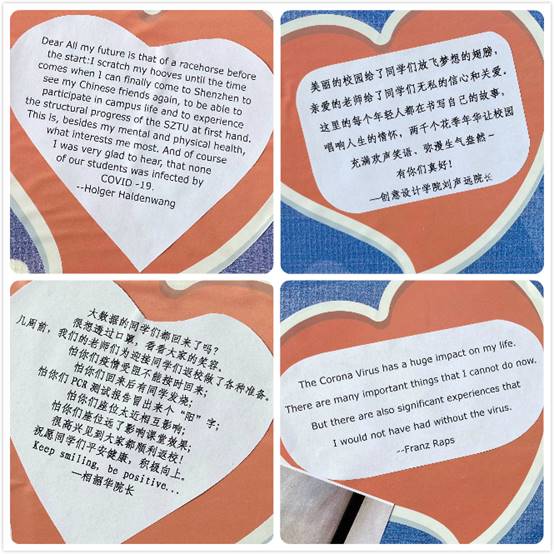 Dear All my future is that of a racehorse before
the start:I scratch my hooves until the time
comes when I can finally come to Shenzhen to
see my Chinese friends again, to be able to
participate in campus life and to experience
the structural progress of the SZTU at first hand.
This is, besides my mental and physical health,
what interests me most. And of course
I was very glad to hear, that none
of our students was infected by
COVID -19.
--Holger Haldenwang
美丽的校园给了同学们放飞梦想的翅膀，
亲爱的老师给了同学们无私的信心和关爱。
这里的每个年轻人都在书写自己的故事，
唱响人生的情怀，两千个花季年华让校园
充满欢声笑语、弥漫生气盎然～
有你们真好！
—创意设计学院刘声远院长
大数据的同学们都回来了吗？
很想透过口罩，看看大家的笑容。
几周前，我们的老师们为迎接同学们返校做了各种准备。
怕你们疫情受阻不能按时回来；
怕你们回来后有同学发烧；
怕你们 PCR 测试报告冒出来个“阳”字；
怕你们座位太近相互影响；
怕你们座位远了影响课堂效果；
很高兴见到大家都顺利返校！
祝愿同学们平安健康，积极向上。
Keep smiling, be positive...
—相韶华院长
The Corona Virus has a huge impact on my life.
There are many important things that I cannot do now.
But there are also significant experiences that
I would not have had without the virus.
--Franz Raps